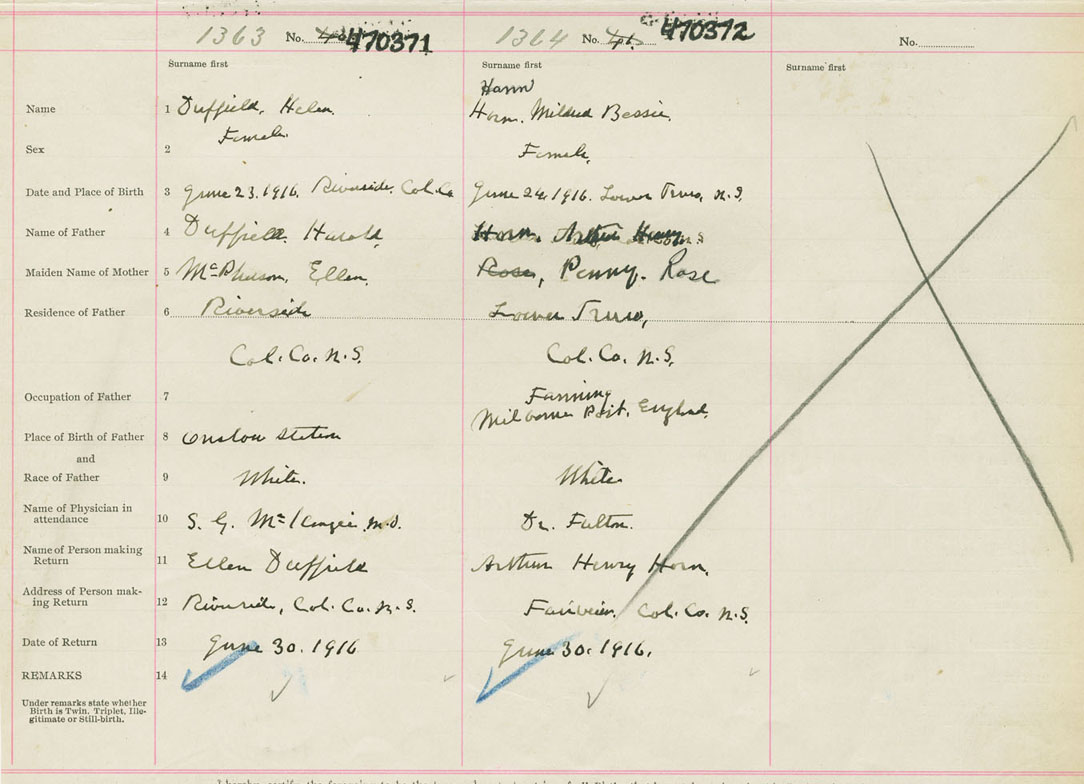 1363 No. 470371 1364 No. 470372 No.
Surname first Surname first Surname first
Hann
Name 1 Duffield, Helen. Horn. Mildred Bessie.
Sex 2 Female. Female.
Date and Place of Birth 3 June 23. 1916. Riverside, Col. Co June 24, 1916. Lower Truro, N.S.
Name of Father 4 Duffield. Harold. Horn. Arthur Henry
Maiden Name of Mother 5 McPherson, Ellen. Rose, Penny. Rose
Residence of Father 6 Riverside Lower Truro,
Col. Co. N.S. Col. Co. N.S.
Occupation of Father 7 Farming
Milborne Port. England.
Place of Birth of Father 8 Onslow Station
and
Race of Father 9 White. White
Name of Physician in
attendance 10 S. G. McKenzie, M.D. Dr. Fulton.
Name of Person making
Return 11 Ellen Duffield Arthur Henry Horn.
Address of Person mak-
ing Return 12 Riverside, Col. Co. N.S. Col. Co. N.S.
Date of Return 13 June 30. 1916 June 30. 1916.
REMARKS 14
Under remarks state whether
Birth is Twin, Triplet, Ille-
gitimate or Still-birth.